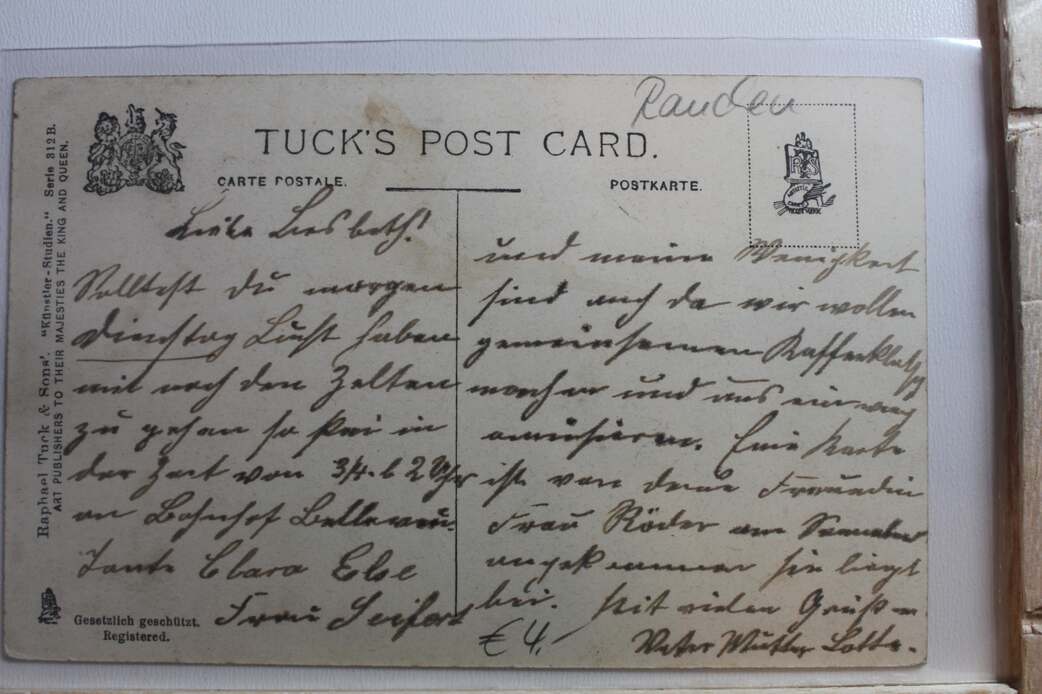 Randen
TUCK'S POST CARD.
CARTE POSTALE.
POSTKARTE.
Raphael Tuck & Sons'. "Künstler-Studien." Serie 312 B.
ART PUBLISHERS TO THEIR MAJESTIES THE KING AND QUEEN.
Gesetzlich geschützt.
Registered.
Liebe Liesbeth!
Solltest du morgen
Dienstag Lust haben
mit nach den Zelten
zu gehen so sei in
der Zeit von 3/4 - 2 Uhr
an Bahnhof Bellevue.
Tante Clara Else
Frau Seifert
und meine Wenigkeit
sind auch da wir wollen
gemeinsamen Kaffeeklatsch
machen und uns ein wenig
amüsieren. Eine Karte
ist von deine Freundin
Frau Röder am Sonnabend
angekommen sie liegt
bei. Mit vielen Grüßen
Vater Mutter Lotte.
€ 4,-